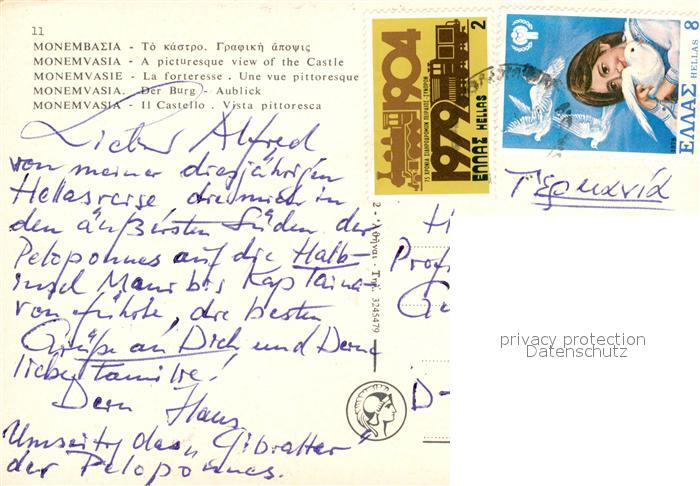 11
ΜΟΝΕΜΒΑΣΙΑ - Τὸ κάστρο. Γραφικὴ ἄποψις
MONEMVASIA - A picturesque view of the Castle
MONEMVASIE - La forteresse. Une vue pittoresque
MONEMVASIA. Der Burg - Aublick
MONEMVASIA - Il Castello. Vista pittoresca
1904
1979
2
75 ΧΡΟΝΙΑ ΣΙΔΗΡΟΔΡΟΜΟΥ ΠΕΙΡΑΙΩΣ-ΣΥΝΟΡΩΝ
ΕΛΛΑΣ HELLAS
8
ΕΛΛΑΣ HELLAS
Γερμανία
Lieber Alfred
von meiner diesjährigen
Hellasreise die mich in
den äußersten Süden der
Peloponnes auf die Halb-
insel Mani bis Kap Taina-
ron führte, die besten
Grüße an Dich und Deine
liebe Familie!
Dein Hans
Umseitig das „Gibralter"
der Peloponnes.
2 - Ἀθῆναι. Τηλ. 3245479
H
Prof
Gu
D-
privacy protection
Datenschutz